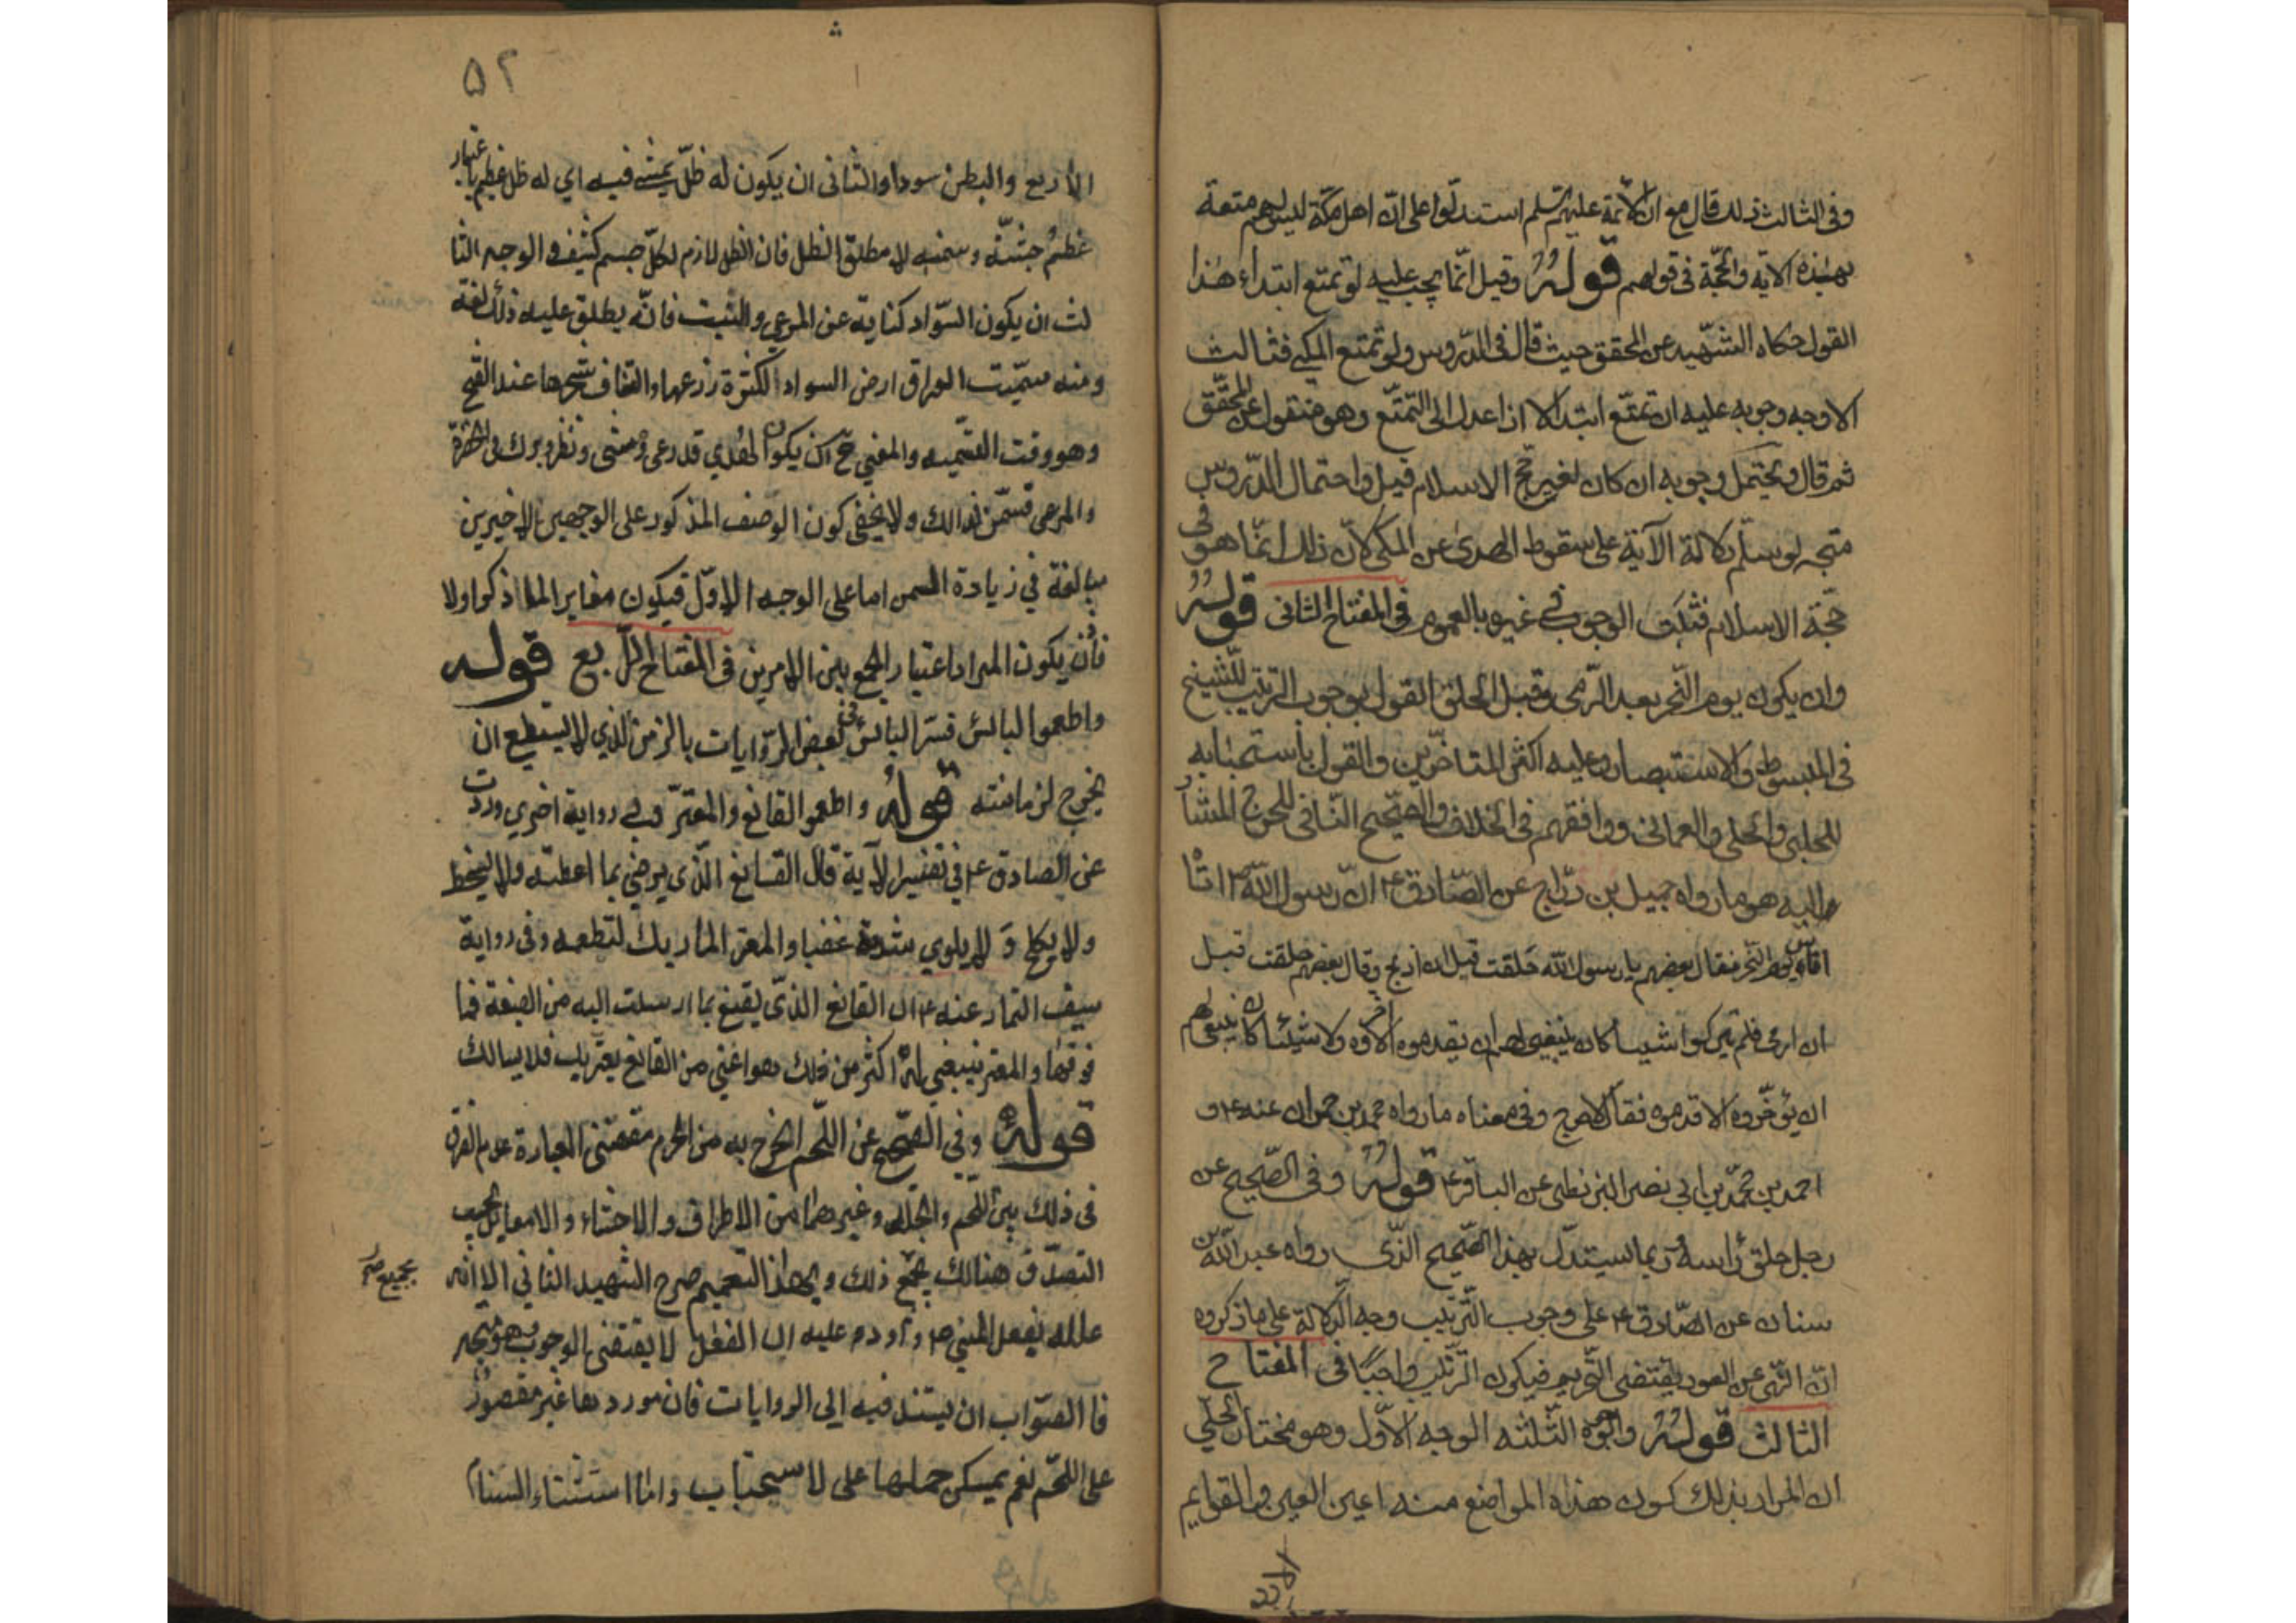 وفي الثالث ذلك قال مع ان الأئمة عليهم السلم استدلوا على انّ اهل مكّة ليس لهم متعة
بهذه الآية والحجّة في قولهم قوله وقيل انّما يجب عليه لو تمتع ابتداء هذا
القول حكاه الشّهيد عن المحقق حيث قال في الدّروس ولو تمتع المكي فثالث
الاوجه وجوبه عليه ان تمتّع ابتداء لا اذا عدل الى التمتّع وهو منقول عن المحقّق
ثم قال ويحتمل وجوبه ان كان لغير حج الاسلام قيل واحتمال الدّروس
متجه لو سلم دلالة الآية على سقوط الهدى عن المكي لانّ ذلك انّما هو في
حجّة الاسلام فثبت الوجوب في غيره بالعموم في المفتاح الثاني قوله
وان يكون يوم النّحر بعد الرّمي وقبل الحلق القول بوجوب الترتيب للشيخ
في المبسوط والاستبصار وعليه اكثر المتاخّرين والقول باستحبابه
للحلبي والحلي والعماني ووافقهم في الخلاف والصّحيح النّافي للحرج المشار
اليه هو ما رواه جميل بن درّاج عن الصّادق ع انّ رسول اللّه ص اتا
اناس يوم النّحر فقال بعضهم يا رسول اللّه حلقت قبل ان اذبح وقال بعضهم حلقت قبل
ان ارمي فلم يتركوا شيئا كان ينبغي لهم ان يقدموه الا اخروه ولا شيئا كان ينبغي لهم
ان يؤخّروه الا قدموه فقال لا حرج وفي معناه ما رواه محمد بن حمران عنه ع و
احمد بن محمّد بن ابي نصر البزنطي عن الباقر ع قوله وفي الصّحيح عن
رجل حلق رأسه ربما يستدل بهذا الصّحيح الّذى رواه عبد اللّه بن
سنان عن الصّادق ع على وجوب التّرتيب وجه الدّلالة على ما ذكروه
انّ النّهي عن العود يقتضى التّحريم فيكون التّرتيب واجبًا في المفتاح
الثالث قوله والوجوه الثّلثه الوجه الاوّل وهو مختار الحلّي
ان المراد بذلك كون هذه المواضع منه اعين العين والقوايم
الاربع
۵۲
الأربع والبطن سودا والثانى ان يكون له ظلّ يمشي فيه اي له ظل عظيم باعتبار
عظم جثّته وسمنه لا مطلق الظل فان الظل لازم لكلّ جسم كثيف والوجه الثا
لث ان يكون السّواد كناية عن المرعى والنبت فانّه يطلق عليه ذلك لغة
ومنه سمّيت العراق ارض السواد لكثرة زرعها والتفاف شجرها عند الفتح
وهو وقت التسميه والمعني ح ان يكون الهدي قد رعى ومشى ونظر وبرك فى الخضرة
والمرعى فسمن لذالك ولا يخفى كون الوصف المذكور على الوجهين الاخيرين
مبالغة في زيادة السمن اما على الوجه الاوّل فيكون مغاير لما ذكر اولا
فان يكون المراد اعتبار الجمع بين الامرين في المفتاح الرّابع قوله
واطعموا البائس فسر البائس في بعض الرّوايات بالزمن الذي لا يستطيع ان
يخرج لزمانته قوله واطعموا القانع والمعترّ وفي رواية اخري وردت
عن الصادق ع في تفسير الآية قال القانع الّذى يرضي بما اعطيته ولا يسخط
ولا يكلح ولا يلوي شدقه غضبا والمعتر المار بك لتطعمه وفي رواية
سيف التمار عنه ع ان القانع الذّى يقنع بما ارسلت اليه من البضعة فما
فوقها والمعتر ينبغي له اكثر من ذلك هو اغنى من القانع يعتريك فلا يسالك
قوله وفي الصّحيح عن اللّحم ايخرج به من الحرم مقتضى العبارة عدم الفرق
في ذلك بين اللحم والجلد وغيرهما من الاطراف والاحشاء والامعاء بل يجب
التصدّق هنالك بجميع ذلك وبهذا التعميم صرح الشهيد الثاني الا انه
علله بفعل النبي ص واورد عليه ان الفعل لا يقتضى الوجوب وهو متّجه
فا الصّواب ان يستند فيه الى الروايات فان موردها غير مقصور
على اللحم نعم يمكن حملها على لا ستحباب واما استثناء السنام
بجميع صح